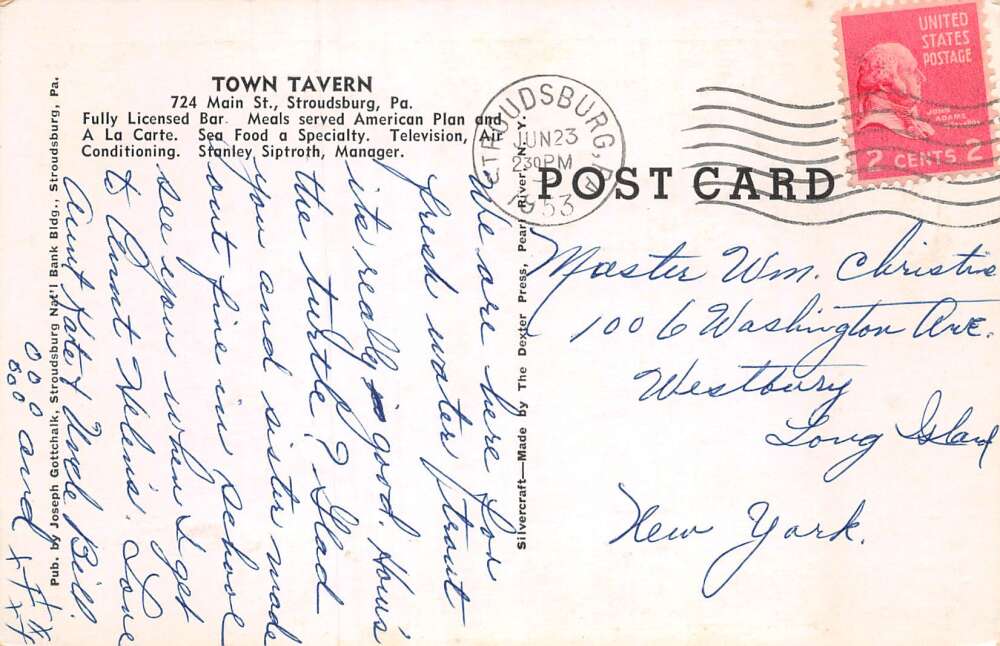 TOWN TAVERN
724 Main St., Stroudsburg, Pa.
Fully Licensed Bar. Meals served American Plan and
A La Carte. Sea Food a Specialty. Television, Air
Conditioning. Stanley Siptroth, Manager.
Pub. by Joseph Gottchalk, Stroudsburg Nat'l Bank Bldg., Stroudsburg, Pa.
We are here for
fresh water trout
its really good. How's
the turtle? Glad
you and sister made
out fine in school
see you when I get
to Aunt Helen's. Love
Aunt Kate & Uncle Bill.
000 and xxxx
000 xx
Silvercraft—Made by The Dexter Press, Pearl River, N. Y.
STROUDSBURG, PA.
JUN 23
2 30 PM
1953
UNITED
STATES
POSTAGE
JOHN
ADAMS
2 CENTS 2
POST CARD
Master Wm. Christie
1006 Washington Ave.
Westbury
Long Island
New York.